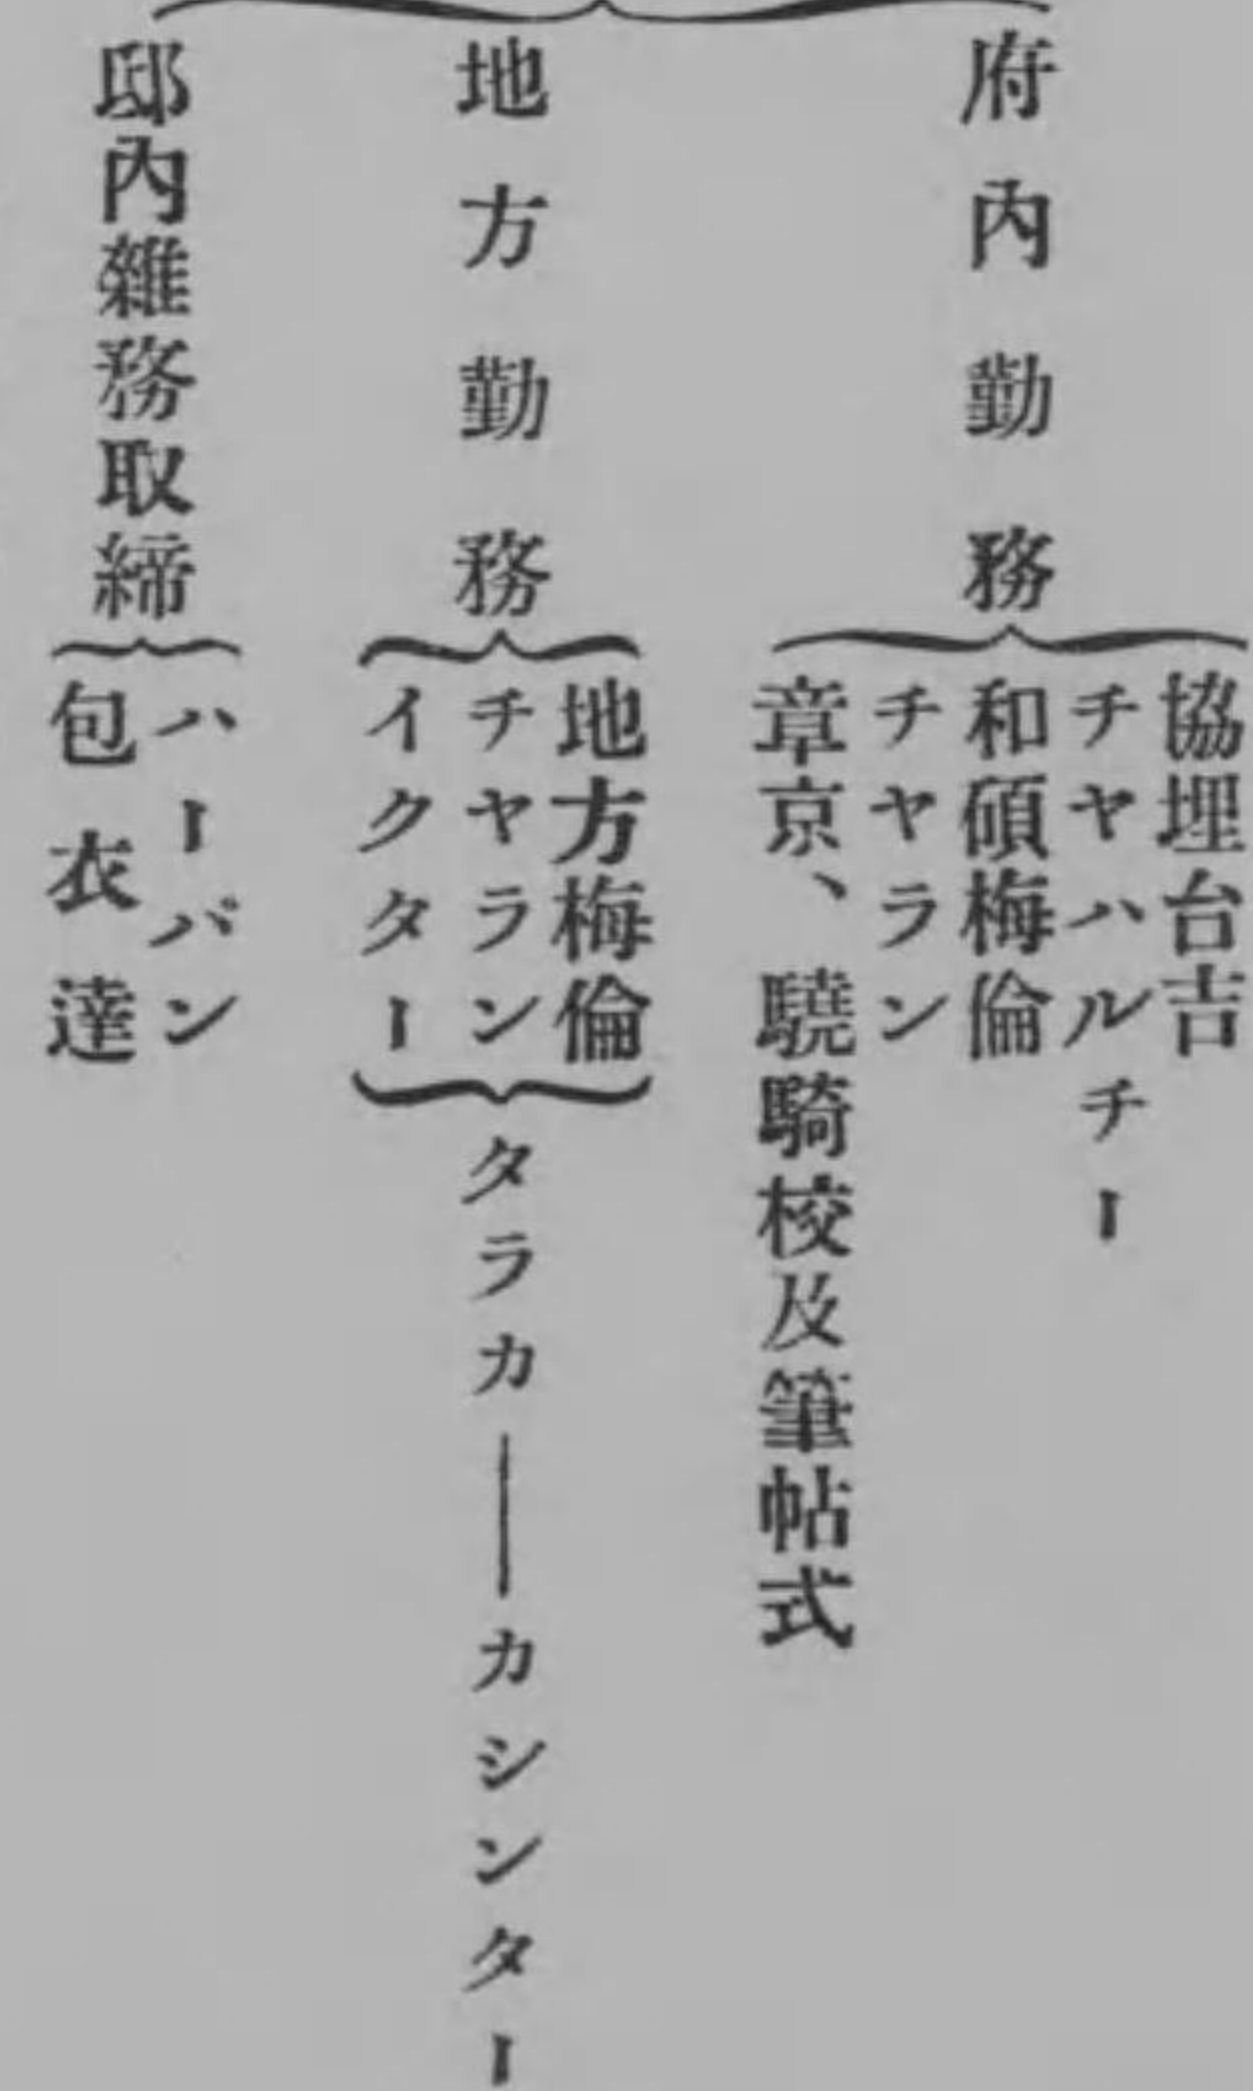 府內勤務
協埋台吉
チヤハルチー
和碩梅倫
チヤラン
章京、驍騎校及筆帖式
地方勤務
地方梅倫
チヤラン
イクター
タラカ──カシンター
邸內雜務取締
ハーバン
包衣達